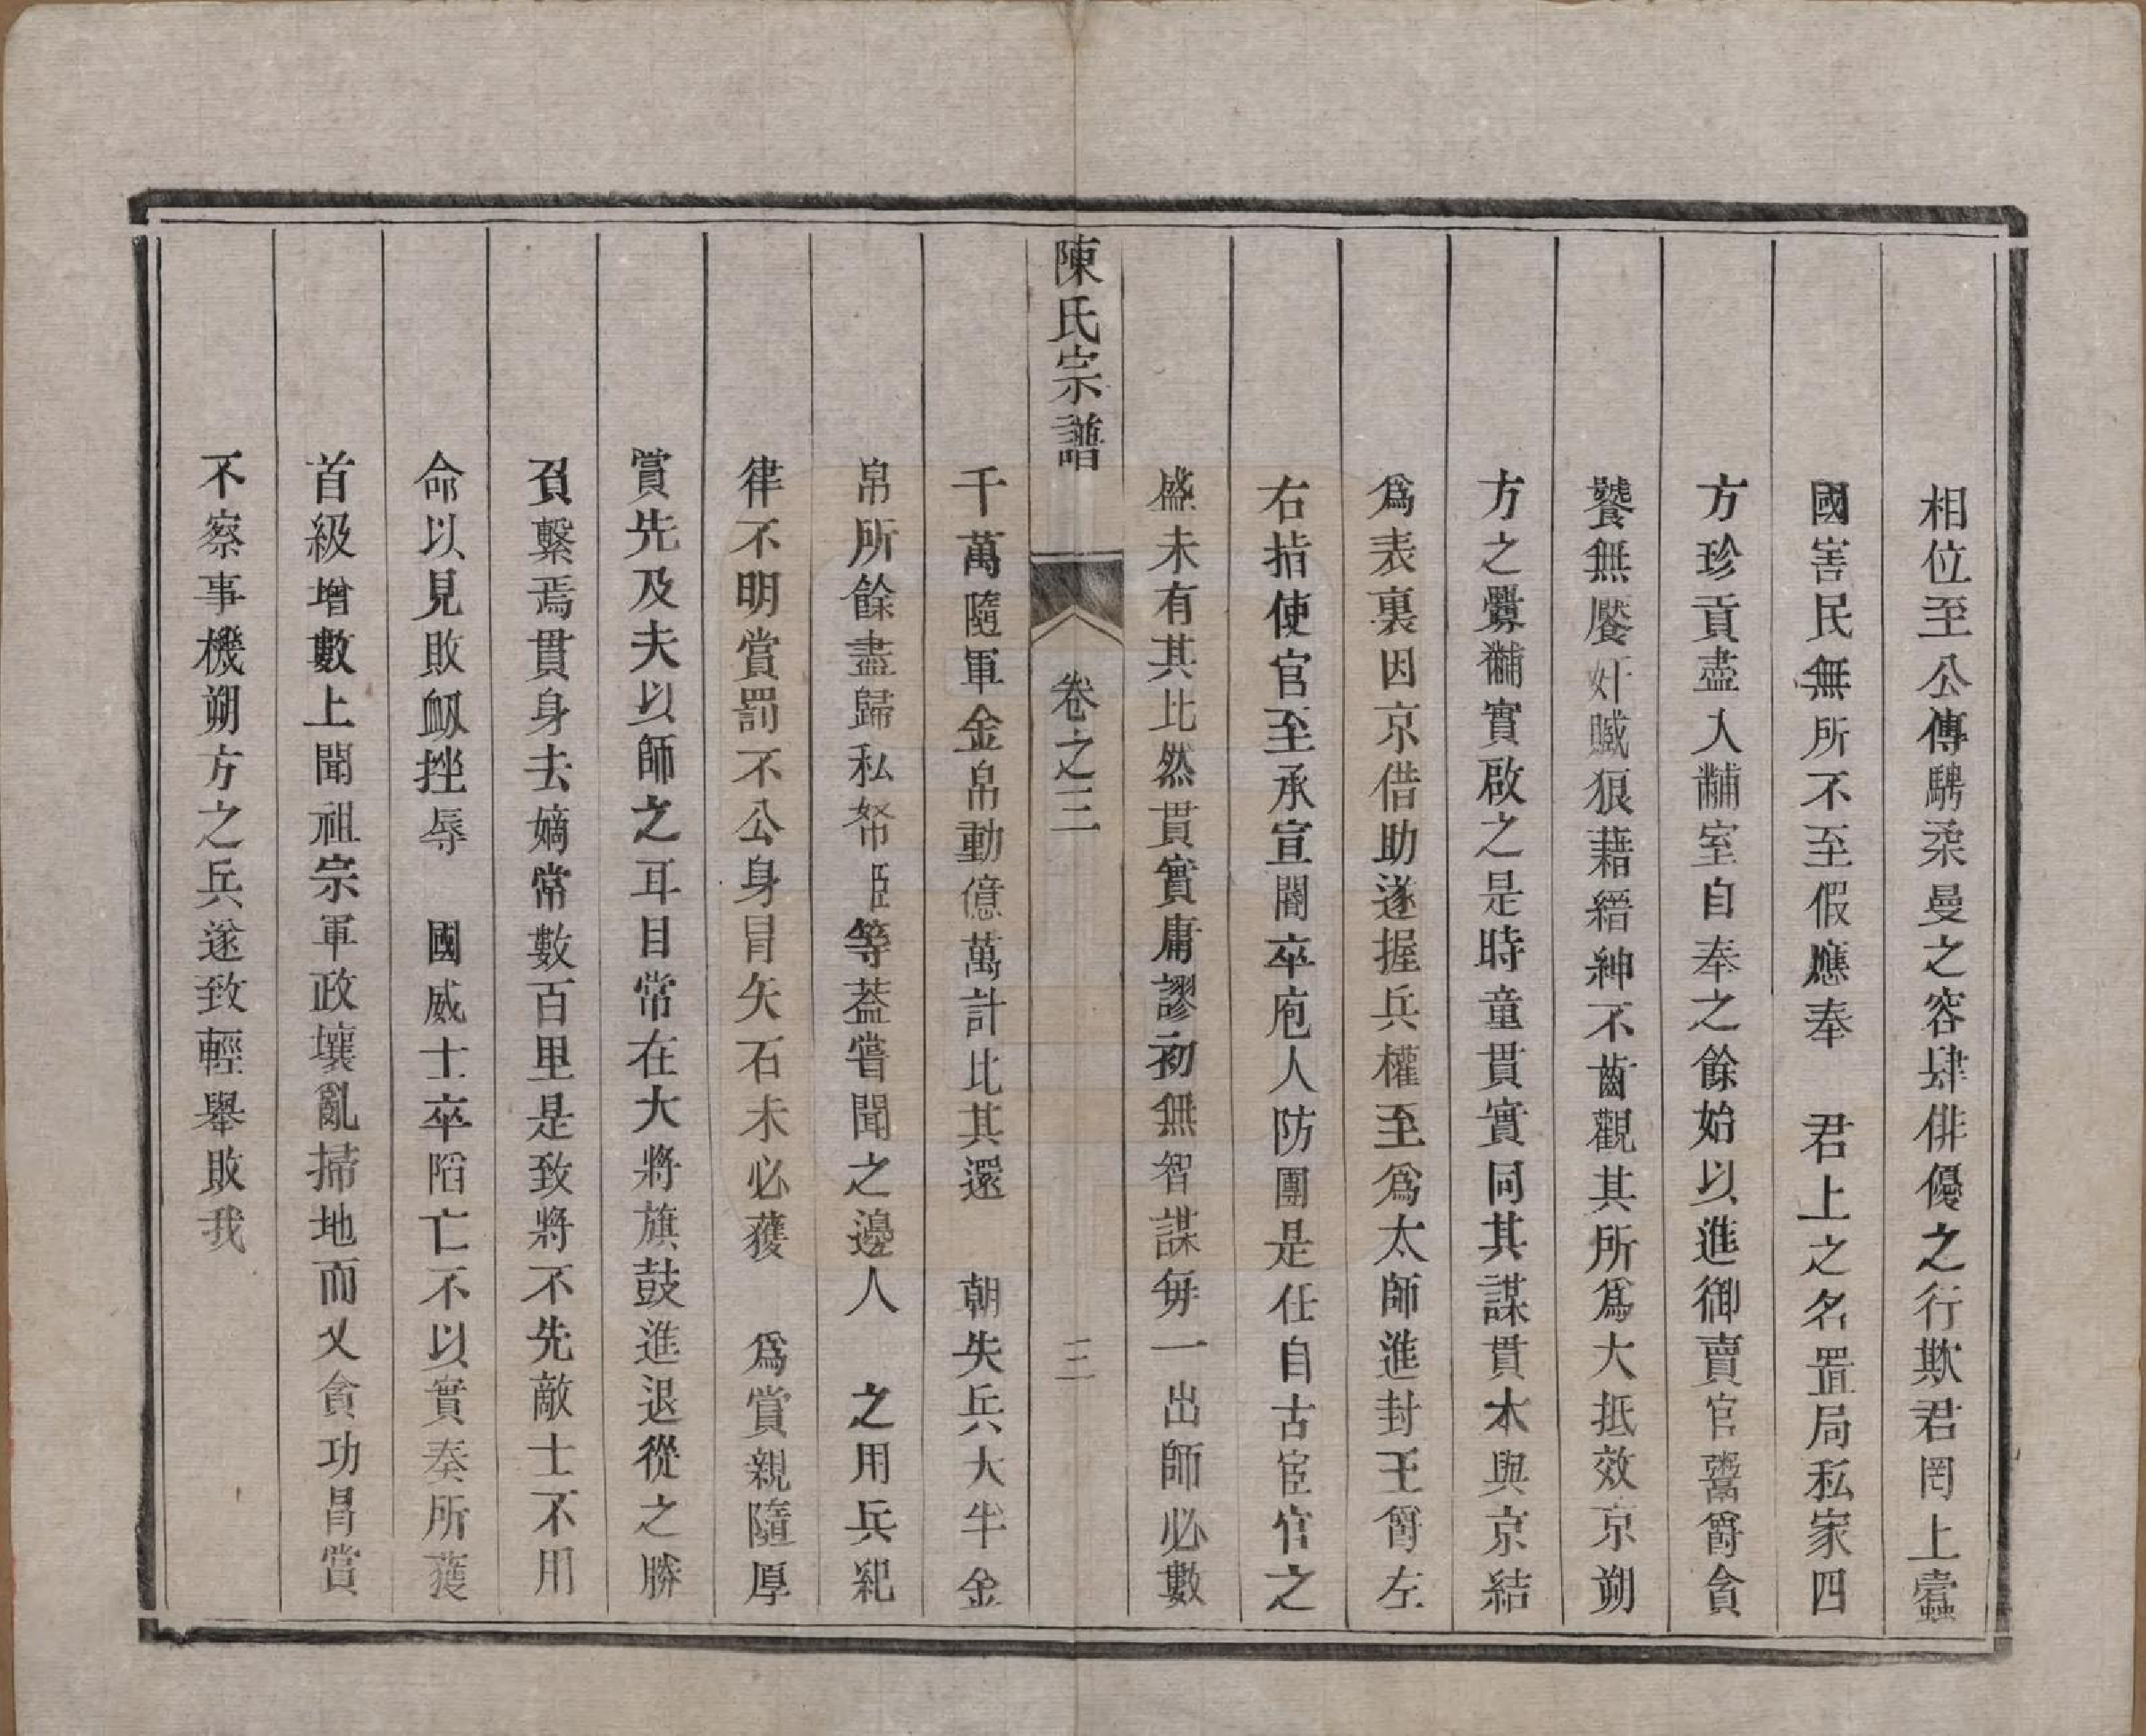 相位至公傅騁柔曼之容肆俳優之行欺君罔上蠹
國害民無所不至假應奉　君上之名置局私家四
方珍貢盡入黼室自奉之餘始以進御賣官鬻爵貪
饕無厭奸贓狼藉縉紳不齒觀其所爲大抵效京朔
方之釁黼實啟之是時童貫實同其謀貫本與京結
爲表裏因京借助遂握兵權至爲太師進封王爵左
右指使官至承宣閽卒庖人防團是任自古宦官之
盛未有其比然貫實庸謬初無智謀每一出師必數
陳氏宗譜　卷之三　三
千萬隨軍金帛動億萬計比其還　朝失兵大半金
帛所餘盡歸私帑臣等葢嘗聞之邊人　之用兵犯
律不明賞罰不公身冒矢石未必獲　爲賞親隨厚
賞先及夫以師之耳目常在大將旗鼓進退從之勝
負繫焉貫身去嫡常數百里是致將不先敵士不用
命以見敗衂挫辱　國威士卒陷亡不以實奏所獲
首級增數上聞祖宗軍政壞亂掃地而又貪功昌賞
不察事機朔方之兵遂致輕舉敗我